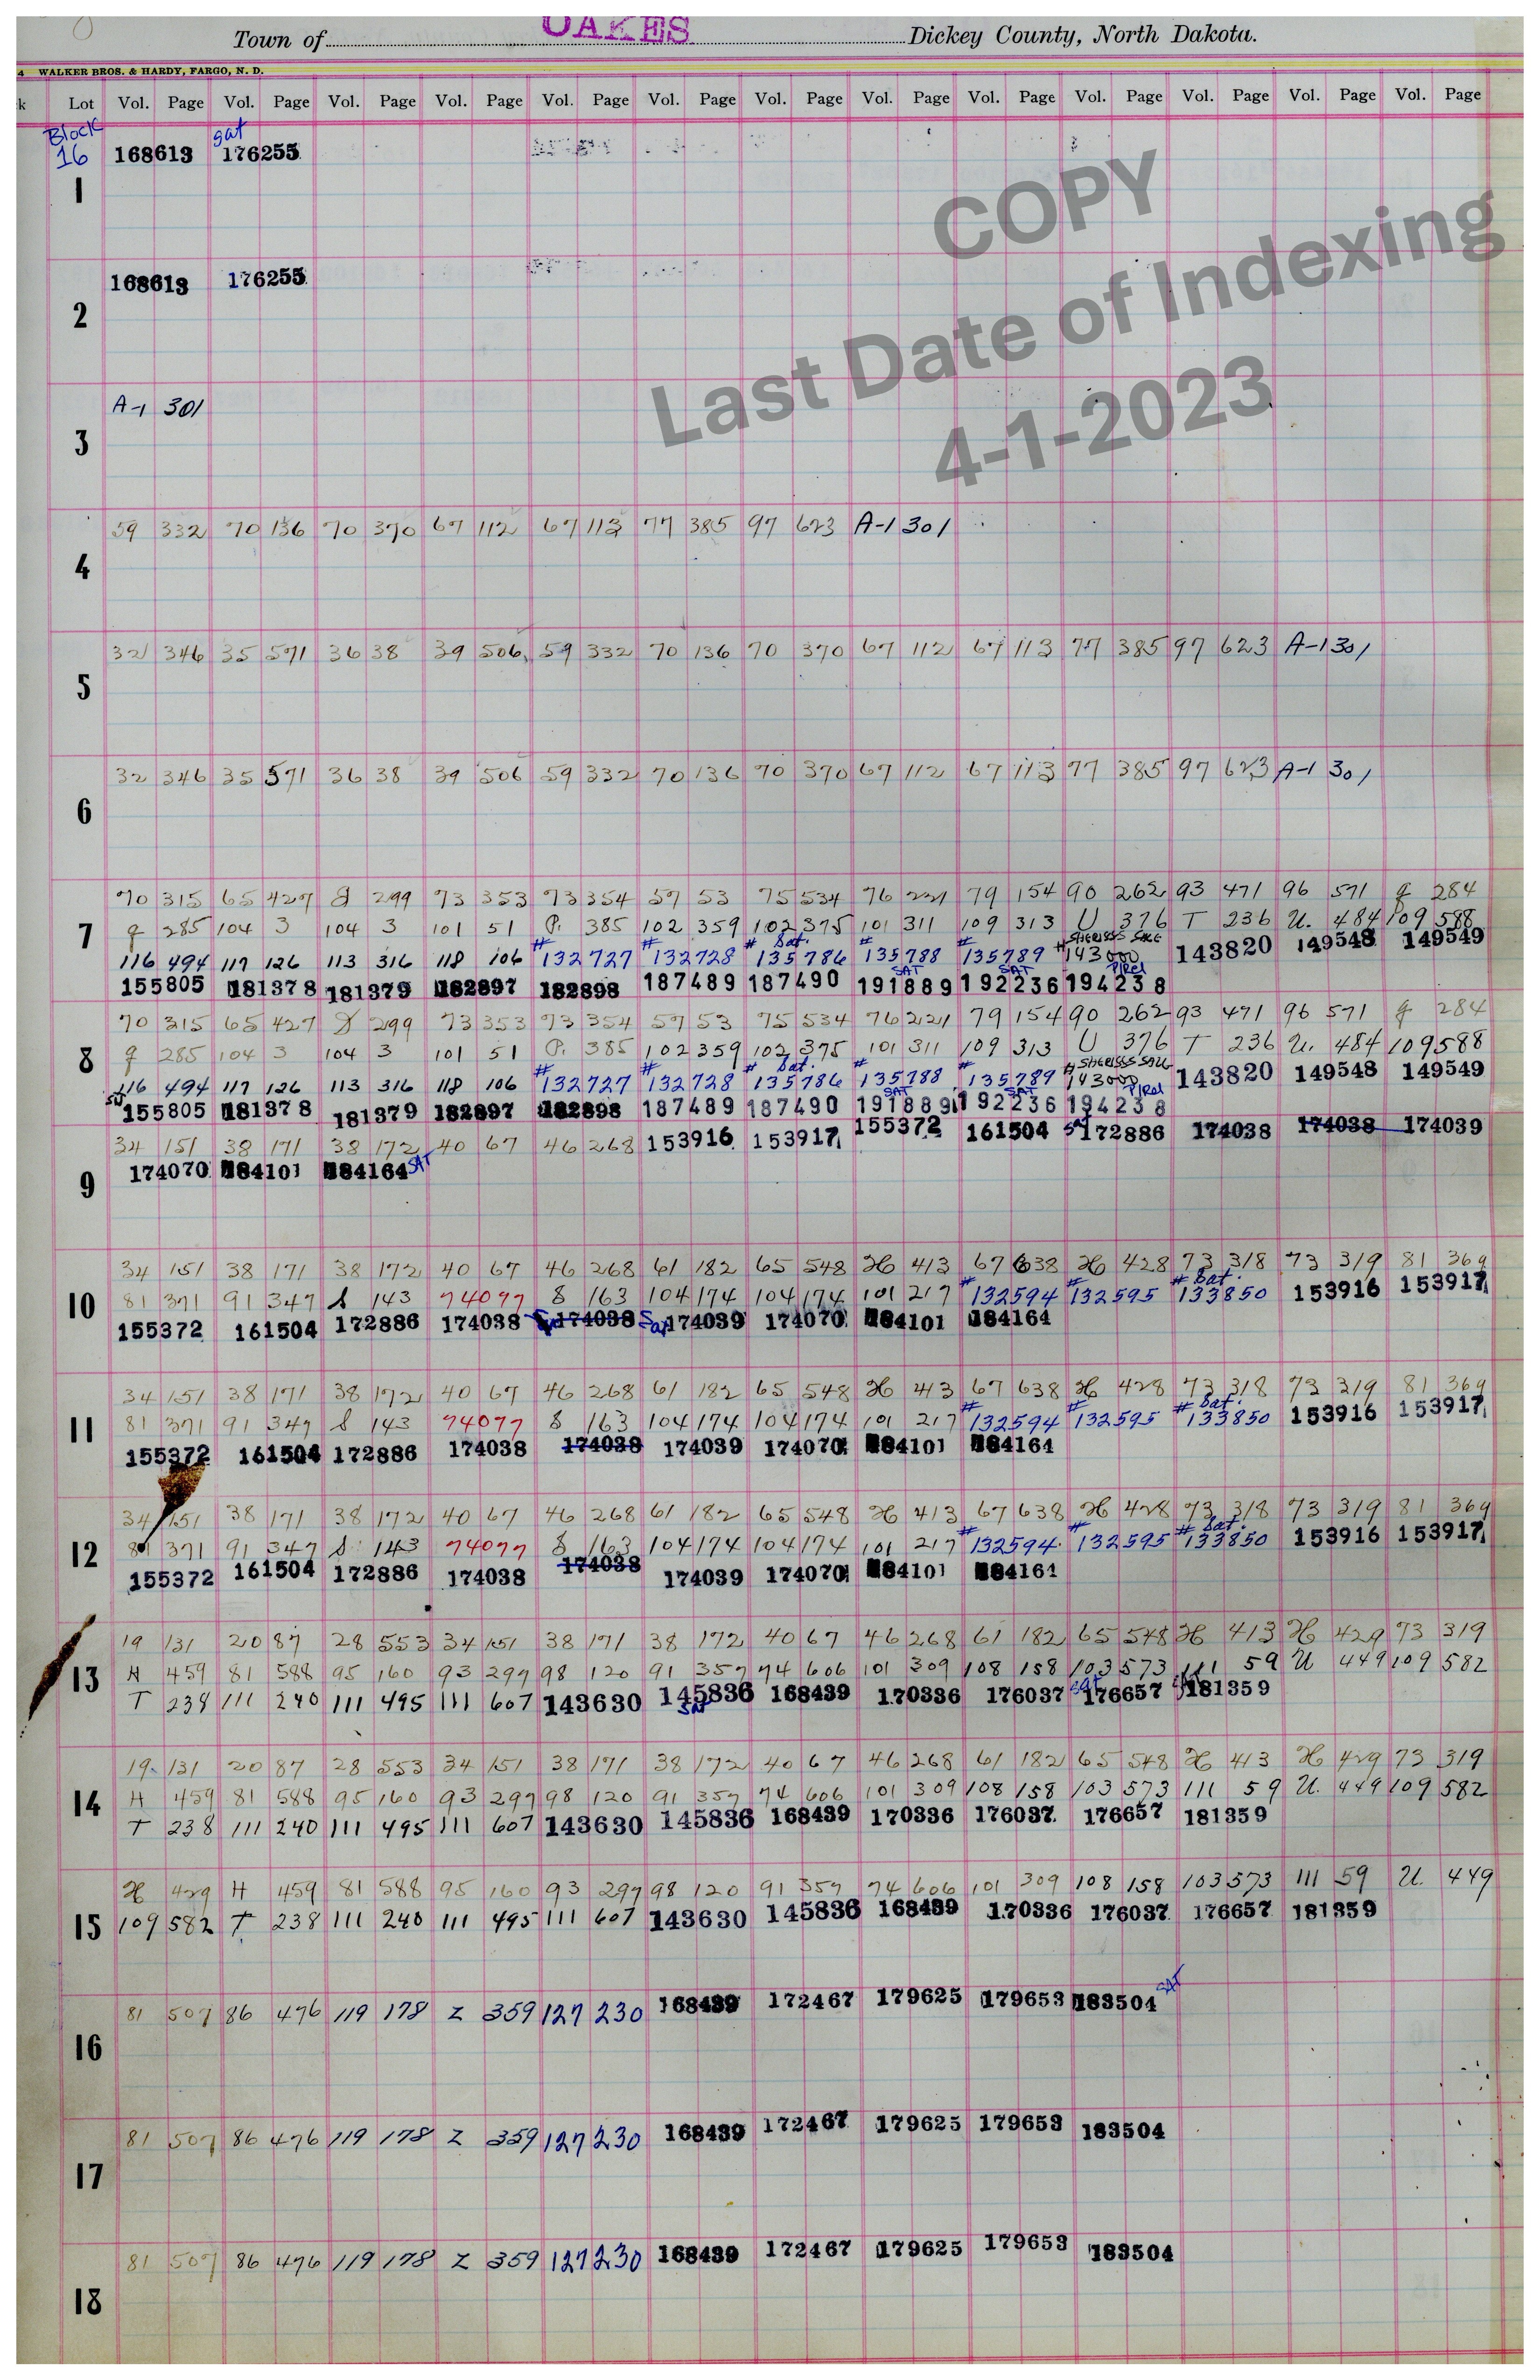 Town of OAKES Dickey County, North Dakota.
WALKER BROS. & HARDY, FARGO, N. D.
k Lot Vol. Page Vol. Page Vol. Page Vol. Page Vol. Page Vol. Page Vol. Page Vol. Page Vol. Page Vol. Page Vol. Page Vol. Page Vol. Page
Block sat
16 168613 176255
1
COPY
Last Date of Indexing
4-1-2023
168613 176255
2
A-1 301
3
59 332 70 136 70 370 67 112 67 113 77 385 97 623 A-1 301
4
32 346 35 571 36 38 39 506 59 332 70 136 70 370 67 112 67 113 77 385 97 623 A-1 301
5
32 346 35 571 36 38 39 506 59 332 70 136 70 370 67 112 67 113 77 385 97 623 A-1 301
6
70 315 65 427 299 73 353 73 354 57 53 75 534 76 221 79 154 90 262 93 471 96 571 g 284
7 g 285 104 3 104 3 101 51 P. 385 102 359 102 375 101 311 109 313 U 376 T 236 U. 484 109 588
# # # Sat. # # # SHERIFFS SALE
116 494 117 126 113 316 118 106 132727 132728 135786 135788 135789 143000 143820 149548 149549
SAT SAT P/Rel
155805 181378 181379 182897 182898 187489 187490 191889 192236 194238
70 315 65 427 299 73 353 73 354 57 53 75 534 76 221 79 154 90 262 93 471 96 571 g 284
8 g 285 104 3 104 3 101 51 P. 385 102 359 102 375 101 311 109 313 U 376 T 236 U. 484 109 588
# # # Sat. # # # SHERIFFS SALE
116 494 117 126 113 316 118 106 132727 132728 135786 135788 135789 143000 143820 149548 149549
SAT SAT P/Rel
155805 181378 181379 182897 182898 187489 187490 191889 192236 194238
34 151 38 171 38 172 40 67 46 268 153916 153917 155372 161504 sat 172886 174038 174038 174039
174070 184101 184164 SAT
9
34 151 38 171 38 172 40 67 46 268 61 182 65 548 H 413 67 638 H 428 73 318 73 319 81 369
# # # Sat.
10 81 371 91 347 S 143 74077 8 163 104 174 104 174 101 217 132594 132595 133850 153916 153917
155372 161504 172886 174038 174038 174039 174070 184101 184164
34 151 38 171 38 172 40 67 46 268 61 182 65 548 H 413 67 638 H 428 73 318 73 319 81 369
# # # Sat.
11 81 371 91 347 S 143 74077 8 163 104 174 104 174 101 217 132594 132595 133850 153916 153917
155372 161504 172886 174038 174038 174039 174070 184101 184164
34 151 38 171 38 172 40 67 46 268 61 182 65 548 H 413 67 638 H 428 73 318 73 319 81 369
# # # Sat.
12 81 371 91 347 S 143 74077 8 163 104 174 104 174 101 217 132594 132595 133850 153916 153917
155372 161504 172886 174038 174038 174039 174070 184101 184164
19 131 20 87 28 553 34 151 38 171 38 172 40 67 46 268 61 182 65 548 H 413 H 429 73 319
13 H 459 81 588 95 160 93 297 98 120 91 357 74 606 101 309 108 158 103 573 111 59 U 449 109 582
T 238 111 240 111 495 111 607 143630 145836 168439 170336 176037 sat 176657 181359
SAT
19 131 20 87 28 553 34 151 38 171 38 172 40 67 46 268 61 182 65 548 H 413 H 429 73 319
14 H 459 81 588 95 160 93 297 98 120 91 357 74 606 101 309 108 158 103 573 111 59 U. 449 109 582
T 238 111 240 111 495 111 607 143630 145836 168439 170336 176037 176657 181359
H 429 H 459 81 588 95 160 93 297 98 120 91 357 74 606 101 309 108 158 103 573 111 59 U. 449
15 109 582 T 238 111 240 111 495 111 607 143630 145836 168439 170336 176037 176657 181359
81 507 86 476 119 178 Z 359 127 230 168439 172467 179625 179653 183504 SAT
16
81 507 86 476 119 178 Z 359 127 230 168439 172467 179625 179653 183504
17
81 507 86 476 119 178 Z 359 127 230 168439 172467 179625 179653 183504
18